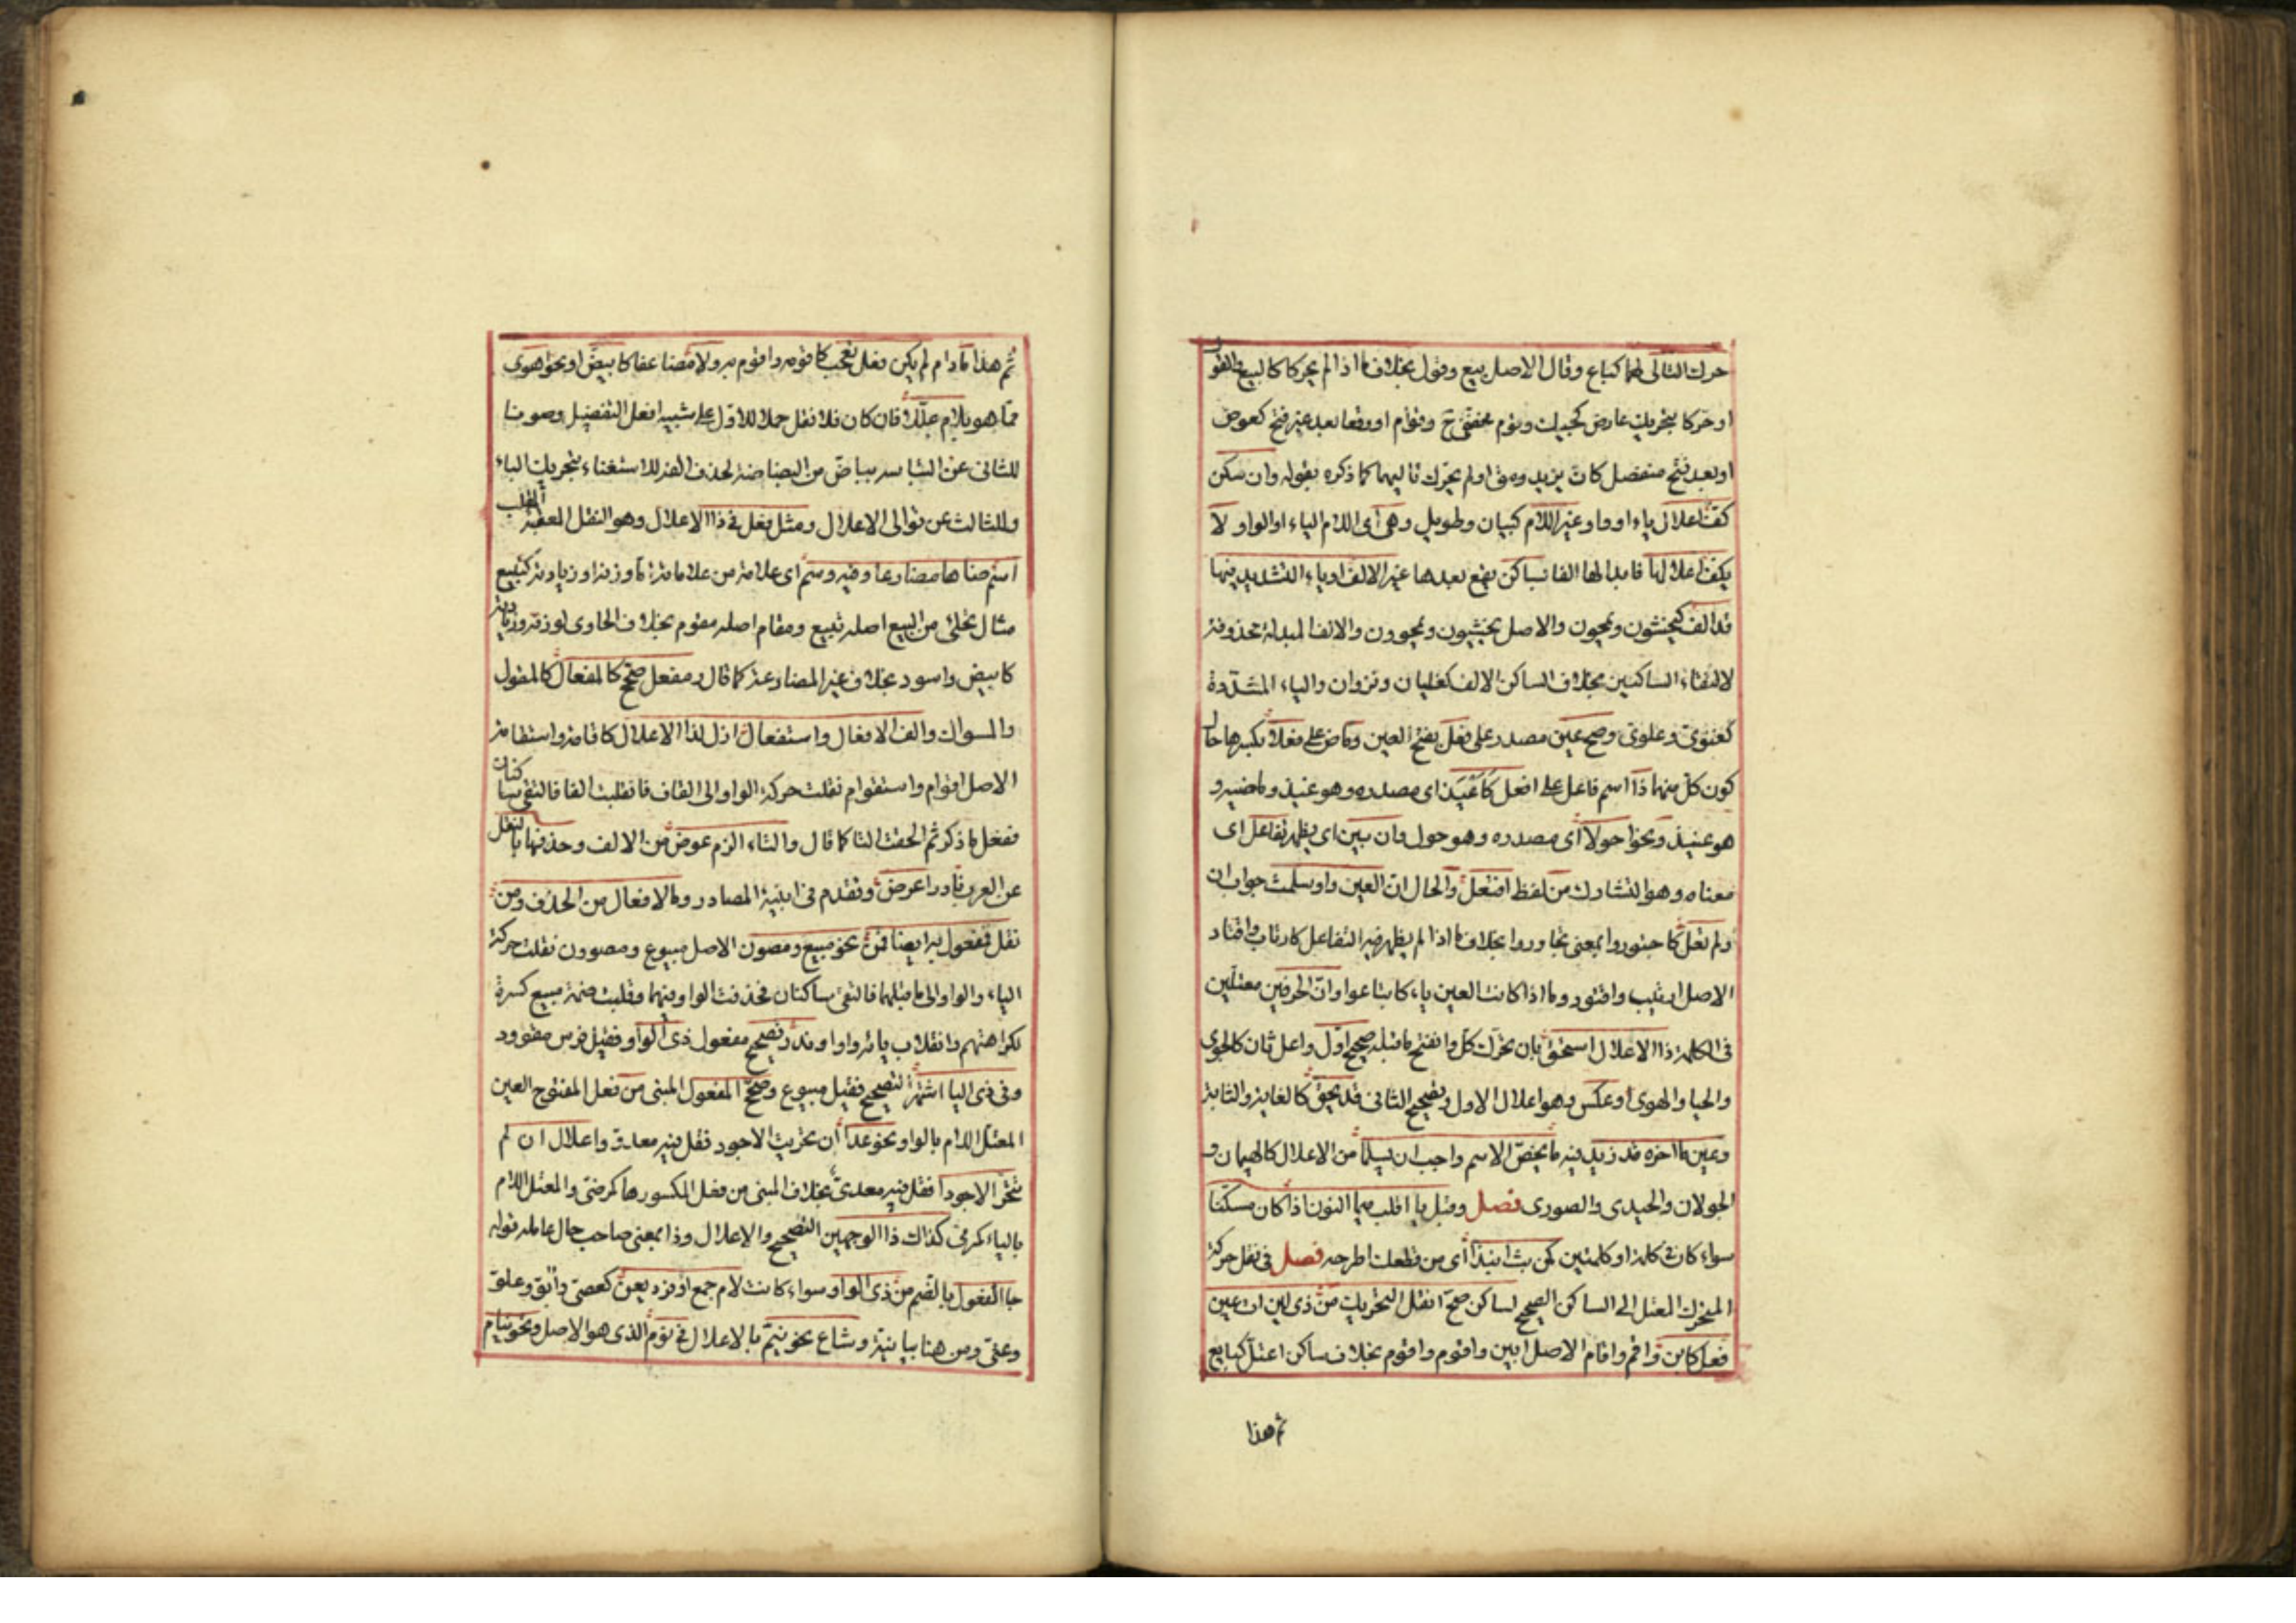 حرك التالى لهما كباع وقال الاصل بيع وقول بخلاف ما اذا لم يحركا كالبيع والقو
ل
او حركا بتحريك عارض كجيل وتوم مخففى ج وتوام او وقعا بعد غير فتح كعوض
او بعد فتح منفصل كان يزيد ومق او لم يحرك تاليهما كما ذكره بقوله وان سكن
كف اعلال ياء او واو غير اللام كبيان وطويل وهى اى اللام الياء او الواو لا
يكف اعلالها فابدالها الفا بساكن يقع بعدها غير الالف او ياء التشديد فيها
قد الف كيخشون ويمحون والاصل يخشيون ويمحوون والالف المبدلة محذوفة
لالتقاء الساكنين بخلاف الساكن الالف كغليان ونزوان والياء المشددة
كغنوى وعلوى وصح عين مصدر على فعل بفتح العين وماض على فعلا بكسرها حال
كون كل منهما ذا اسم فاعل على افعل كاغيد اى مصدره وهو غيد وماضيه و
هو غيد ونحو احولا اى مصدره وهو حول وان يبن اى يظهر تفاعل اى
معناه وهو التشارك من لفظ افتعل والحال ان العين واو سلمت جواب ان
ولم تعل كاجتوروا بمعنى تجاوروا بخلاف ما اذا لم يظهر فيه التفاعل كارتاب واقتاد
الاصل ارتيب واقتود وما اذا كانت العين ياء كابتاعوا وان الحرفين معتلين
فى الكلمة ذا الاعلال استحق بان تحرك كل وانفتح ما قبله صحح اول واعل ثان كالحوى
والحيا والهوى او عكس وهو اعلال الاول وتصحيح الثانى قد يحق كالغاية والثاية
وعين ما اخره قد زيد فيه ما يخص الاسم واجب ان يسلما من الاعلال كالهيمان و
الجولان والحيدى والصورى فصل وقبل با اقلب ميما النون اذا كان مسكنا
سواء كان فى كلمة او كلمتين كمن بت انبذا اى من قطعك اطرحه فصل فى نقل حركة
المتحرك المعتل الى الساكن الصحيح لساكن صح انقل التحريك من ذى لين ات عين
فعل كابن واقم واقام الاصل ابين واقوم واقوم بخلاف ساكن اعتل كبايع
ثم هذا
ثم هذا ما دام لم يكن فعل تعجب كاقومه واقوم به ولا مضاعفا كابيض او نحو اهوى
مما هو بلام عللا فان كان فلا نقل حملا للاول على شبيه افعل التفضيل وصونا
للثانى عن التباسه بباض من البضاضة لحذف الفه للاستغناء بتحريك الباء
وللثالث عن توالى الاعلال ومثل فعل فى ذا الاعلال وهو النقل المعقبه القلب
اسم ضاها مضارعا وفيه وسم اى علامة من علاماته اما وزنه او زيادته كتبيع
مثال تحلئ من البيع اصله تبيع ومقام اصله مقوم بخلاف الحاوى لوزنه وزيادته
كابيض واسود بخلاف غير المضارعة كما قال ومفعل صحح كالمفعال كالمقول
والمسواك والف الافعال واستفعال ازل لذا الاعلال كاقامة واستقامة
الاصل اقوام واستقوام نقلت حركة الواو الى القاف فانقلبت الفا فالتقى ساكنان
ففعل ما ذكر ثم الحقت التا كما قال والتاء الزم عوض من الالف وحذفها بالنقل
عن العرب نادرا عرض وتقدم فى ابنية المصادر وما لافعال من الحذف ومن
نقل فمفعول به ايضا قمن نحو مبيع ومصون الاصل مبيوع ومصوون نقلت حركة
الياء والواو الى ما قبلهما فالتقى ساكنان فحذفت الواو فيهما وقلبت ضمة مبيع كسرة
لكراهتهم وانقلاب يائه واوا وندر تصحيح مفعول ذى الواو فقيل فرس مقوود
وفى ذى اليا اشتهر التصحيح فقيل مبيوع وصحح المفعول المبنى من فعل المفتوح العين
المعتل اللام بالواو نحو عدا ان تحريت الاجود فقل فيه معدو واعلل ان لم
تتحر الاجودا فقل فيه معدى بخلاف المبنى من فعل المكسورها كمرضى والمعتل اللام
بالياء كمرمى كذاك ذا الوجهين التصحيح والاعلال وذا بمعنى صاحب حال عامله قوله
جا الفعول بالضم من ذى الواو سواء كانت لام جمع او فرد يعن كعصى وابو وعلو
وعتى ومن هنا بيانية وشاع نحو نيم بالاعلال فى نوم الذى هو الاصل ونحو نيام